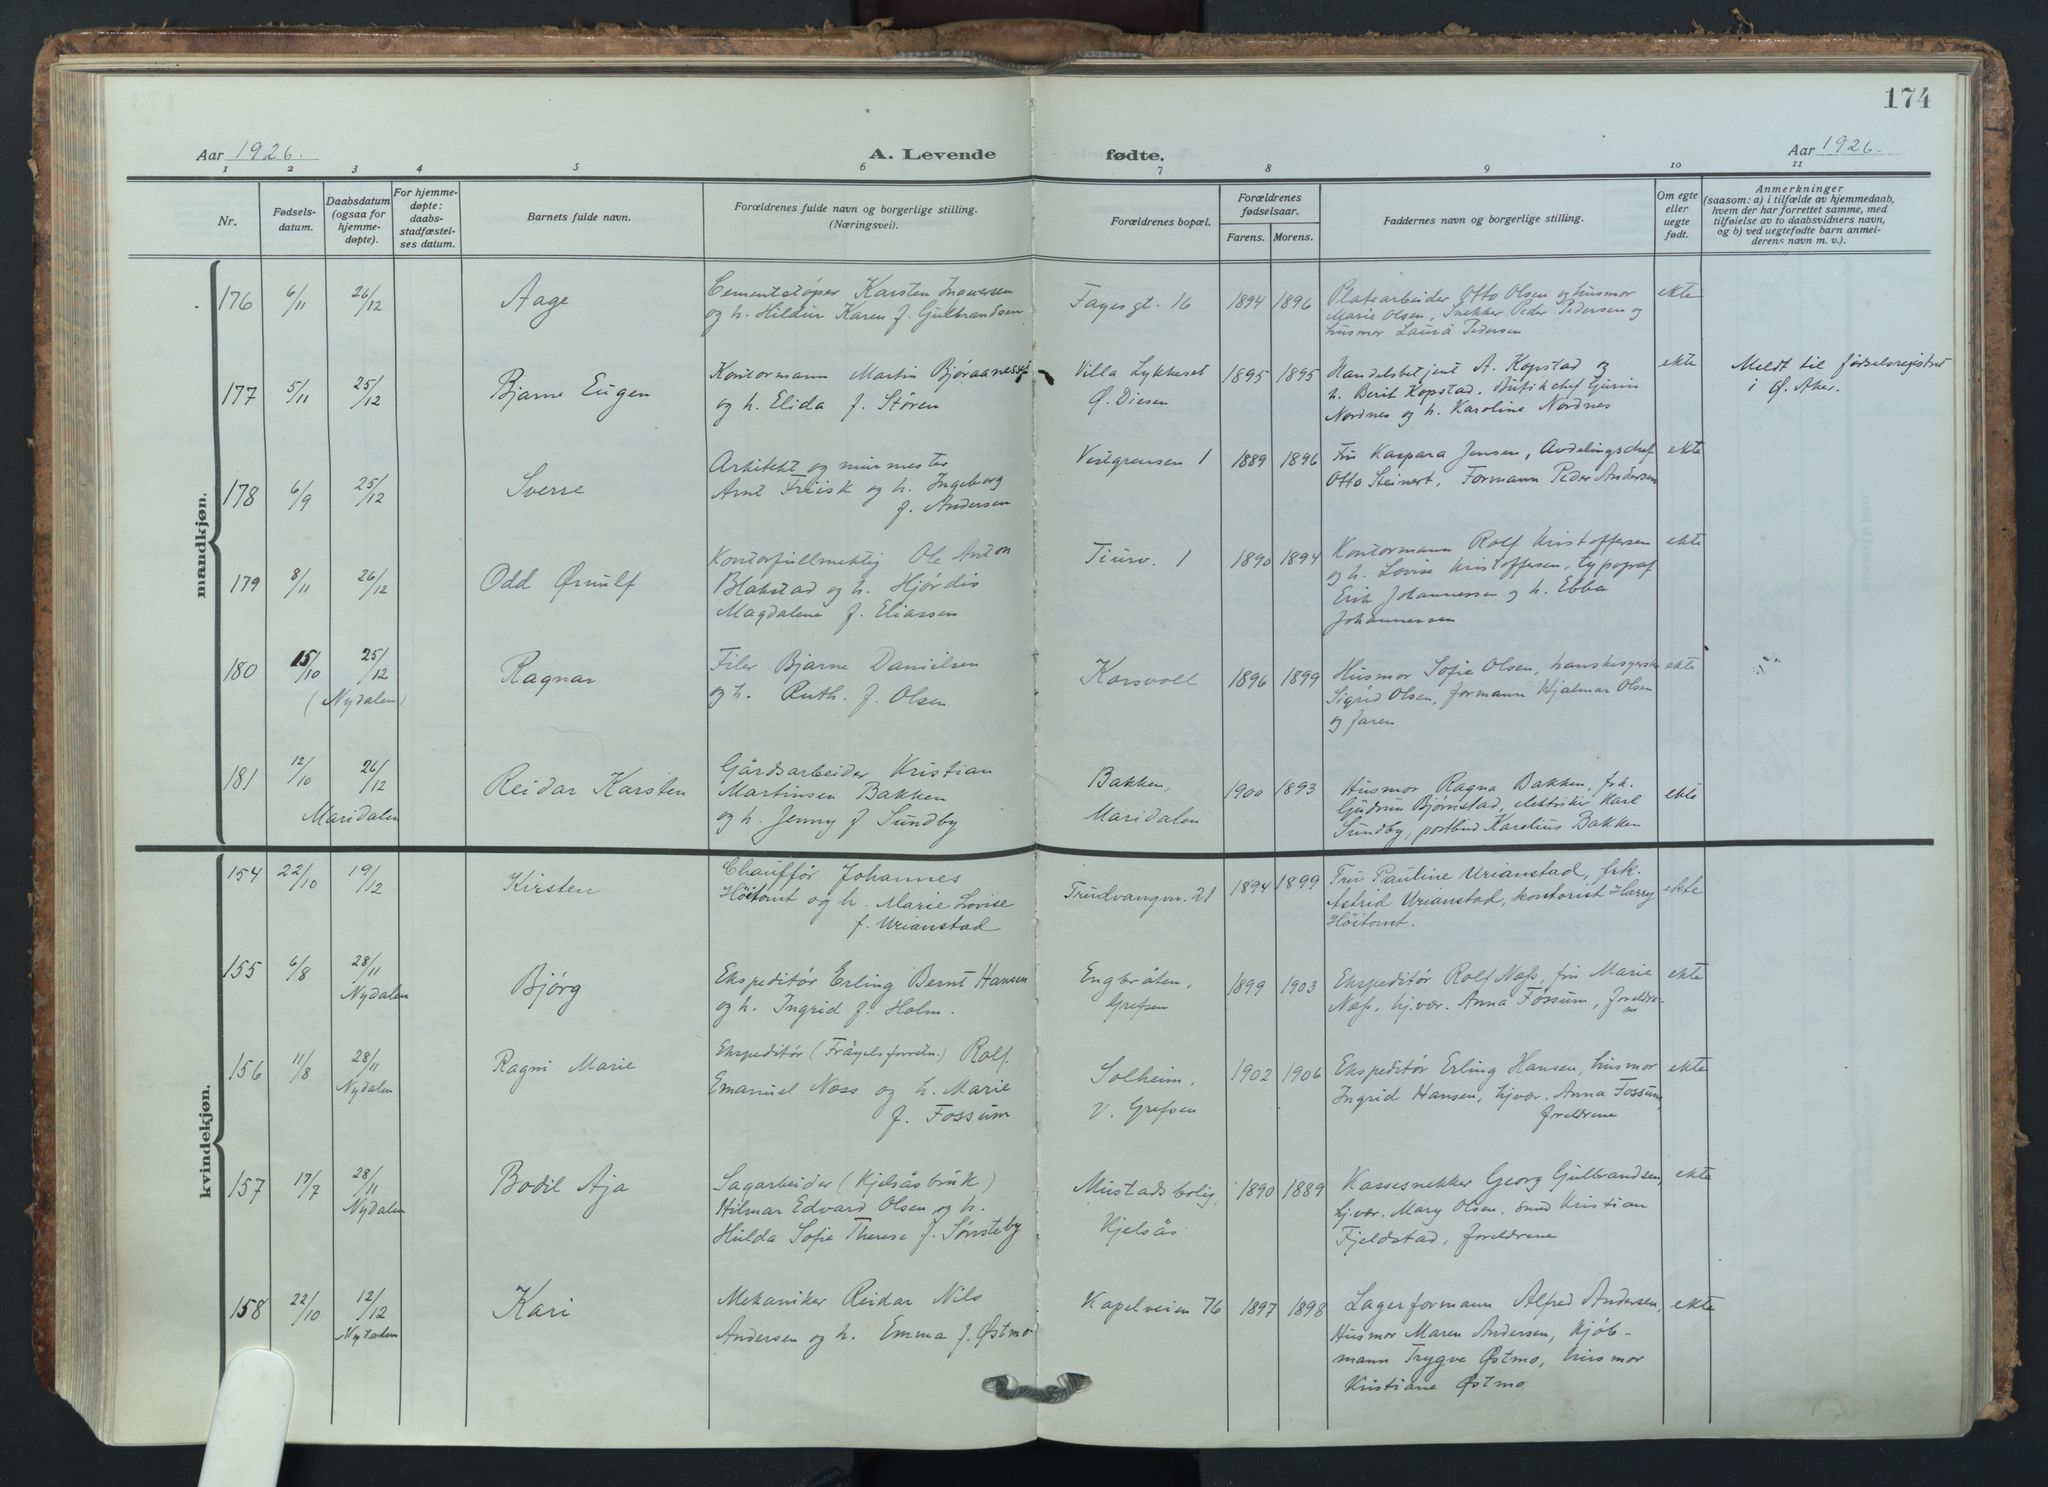 174
Aar 1926.
A. Levende fødte.
Aar 1926.
1 2 3 4 5 6 7 8 9 10 11
Nr.
Fødsels-
datum.
Daabsdatum
(ogsaa for
hjemme-
døpte).
For hjemme-
døpte:
daabs-
stadfæstel-
ses datum.
Barnets fulde navn.
Forældrenes fulde navn og borgerlige stilling.
(Næringsvei).
Forældrenes bopæl.
Forældrenes
fødselsaar.
Farens. Morens.
Faddernes navn og borgerlige stilling.
Om egte
eller
uegte
født.
Anmerkninger
(saasom: a) i tilfælde av hjemmedaab,
hvem der har forrettet samme, med
tilføielse av to daabsvidners navn,
og b) ved uegtefødte barn anmel-
derens navn m. v.).
mandkjøn.
176 6/11 26/12 Aage
Cementstøper Karsten Ingwersen
og h. Hildur Karen f. Gulbrandsen
Fayesgt. 16 1894 1896
Platearbeider Otto Olsen og husmor
Marie Olsen, Snekker Peder Pedersen og
husmor Laura Pedersen
ekte
177 5/11 25/12 Bjarne Eugen
Kontormann Martin Bjøraanesset
og h. Elida f. Støren
Villa Lykkeset
Ø. Disen
1895 1895
Handelsbetjent A. Kopstad og
h. Berit Kopstad. Butikchef
Nordnes og h. Karoline Nordnes
ekte
Meldt til fødselsregistret
i Ø. Aker.
178 6/9 25/12 Sverre
Arkitekt og murmester
Arnt Friisk og h. Ingeborg
f. Andersen
Vestgrensen 1 1889 1896
Fru Kaspara Jensen, Avdelingschef
Otto Steinert, Formann Peder Andersen
ekte
179 8/11 26/12 Odd Ørnulf
Kontorfullmektig Ole Anton
Blakstad og h. Hjørdis
Magdalene f. Eliassen
Tiurv. 1 1890 1894
Kontormann Rolf Kristoffersen
og h. Lovise Kristoffersen, typograf
Erik Johannessen og h. Ebba
Johannessen
ekte
180 15/10 25/12 Ragnar
(Nydalen)
Filer Bjarne Danielsen
og h. Ruth. f. Olsen
Korsvoll 1896 1899
Husmor Sofie Olsen, hanskesyerske
Sigrid Olsen, formann Hjalmar Olsen
og faren
ekte
181 12/10 26/12 Reidar Karsten
Maridalen
Gårdsarbeider Kristian
Martinsen Bakken
og h. Jenny f. Sundby
Bakken,
Maridalen
1900 1893
Husmor Ragna Bakken, frk.
Gudrun Bjørnstad, elektriker Karl
Sundby, postbud Karelius Bakken
ekte
kvindekjøn.
154 22/10 19/12 Kirsten
Chauffør Johannes
Høitomt og h. Marie Lovise
f. Urianstad
Trudvangvn. 21 1894 1899
Fru Pauline Urianstad, frk.
Astrid Urianstad, kontorist Harry
Høitomt.
ekte
155 6/8 28/11 Bjørg
Nydalen
Ekspeditør Erling Bernt Hansen
og h. Ingrid f. Holm.
Engbråten,
Grefsen
1899 1903
Ekspeditør Rolf Næss, fru Marie
Næss, hj.vær. Anna Fossum, foreldre-
n
ekte
156 11/8 28/11 Ragni Marie
Nydalen
Ekspeditør Rolf
Emanuel Næss og h. Marie
f. Fossum
Solheim,
V. Grefsen
1902 1906
Ekspeditør Erling Hansen, husmor
Ingrid Hansen, hj.vær. Anna Fossum,
foreldrene
ekte
157 17/7 28/11 Bodil Aja
Nydalen
Sagarbeider (Kjelsåsbruk)
Hilmar Edvard Olsen og h.
Hulda Sofie Therese f. Sønsteby
Mustadsbolig,
Kjelsås
1890 1889
Kassesnekker Georg Gulbrandsen,
hj.vær. Mary Olsen, smed Kristian
Fjeldstad, foreldrene
ekte
158 22/10 12/12 Kari
Nydalen
Mekaniker Reidar Nils
Andersen og h. Emma f. Østmo
Kapelveien 76 1897 1898
Lagerformann Alfred Andersen,
Husmor Maren Andersen, Kjøb-
mann Trygve Østmo, husmor
Kristiane Østmo
ekte